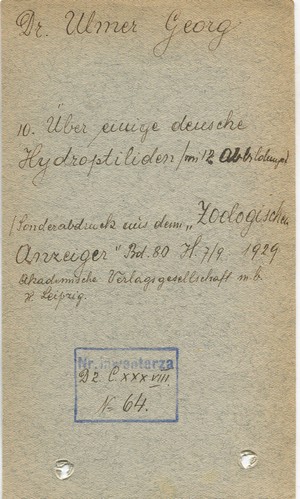 Dr. Ulmer Georg
10. Über einige deusche
Hydroptiliden /mit 12 Abbildungen/
/Sonderabdruck aus dem „Zoologischen
Anzeiger" Bd. 80 H. 7/9. 1929
Akademische Verlagsgesellschaft m.b.
H. Leipzig.
Nr. inwentarza
D2 CXXXVIII.
No 64.